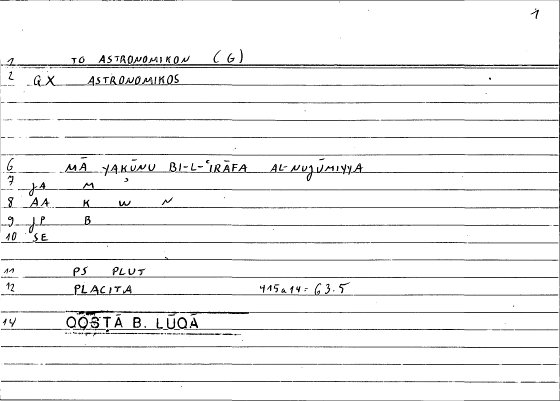 1
1 TO ASTRONOMIKON (G)
2 GX ASTRONOMIKOS
6 MĀ YAKŪNU BI-L-ʿIRĀFA AL-NUJŪMIYYA
7 JA M ʾ
8 AA K W N
9 JP B
10 SE
11 PS PLUT
12 PLACITA 415a14 = 63.5
14 QŌSṬĀ B. LŪQĀ